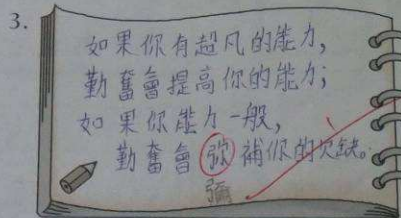 3.
如果你有超凡的能力,
勤奮會提高你的能力;
如果你能力一般,
勤奮會弥補你的欠缺。
彌